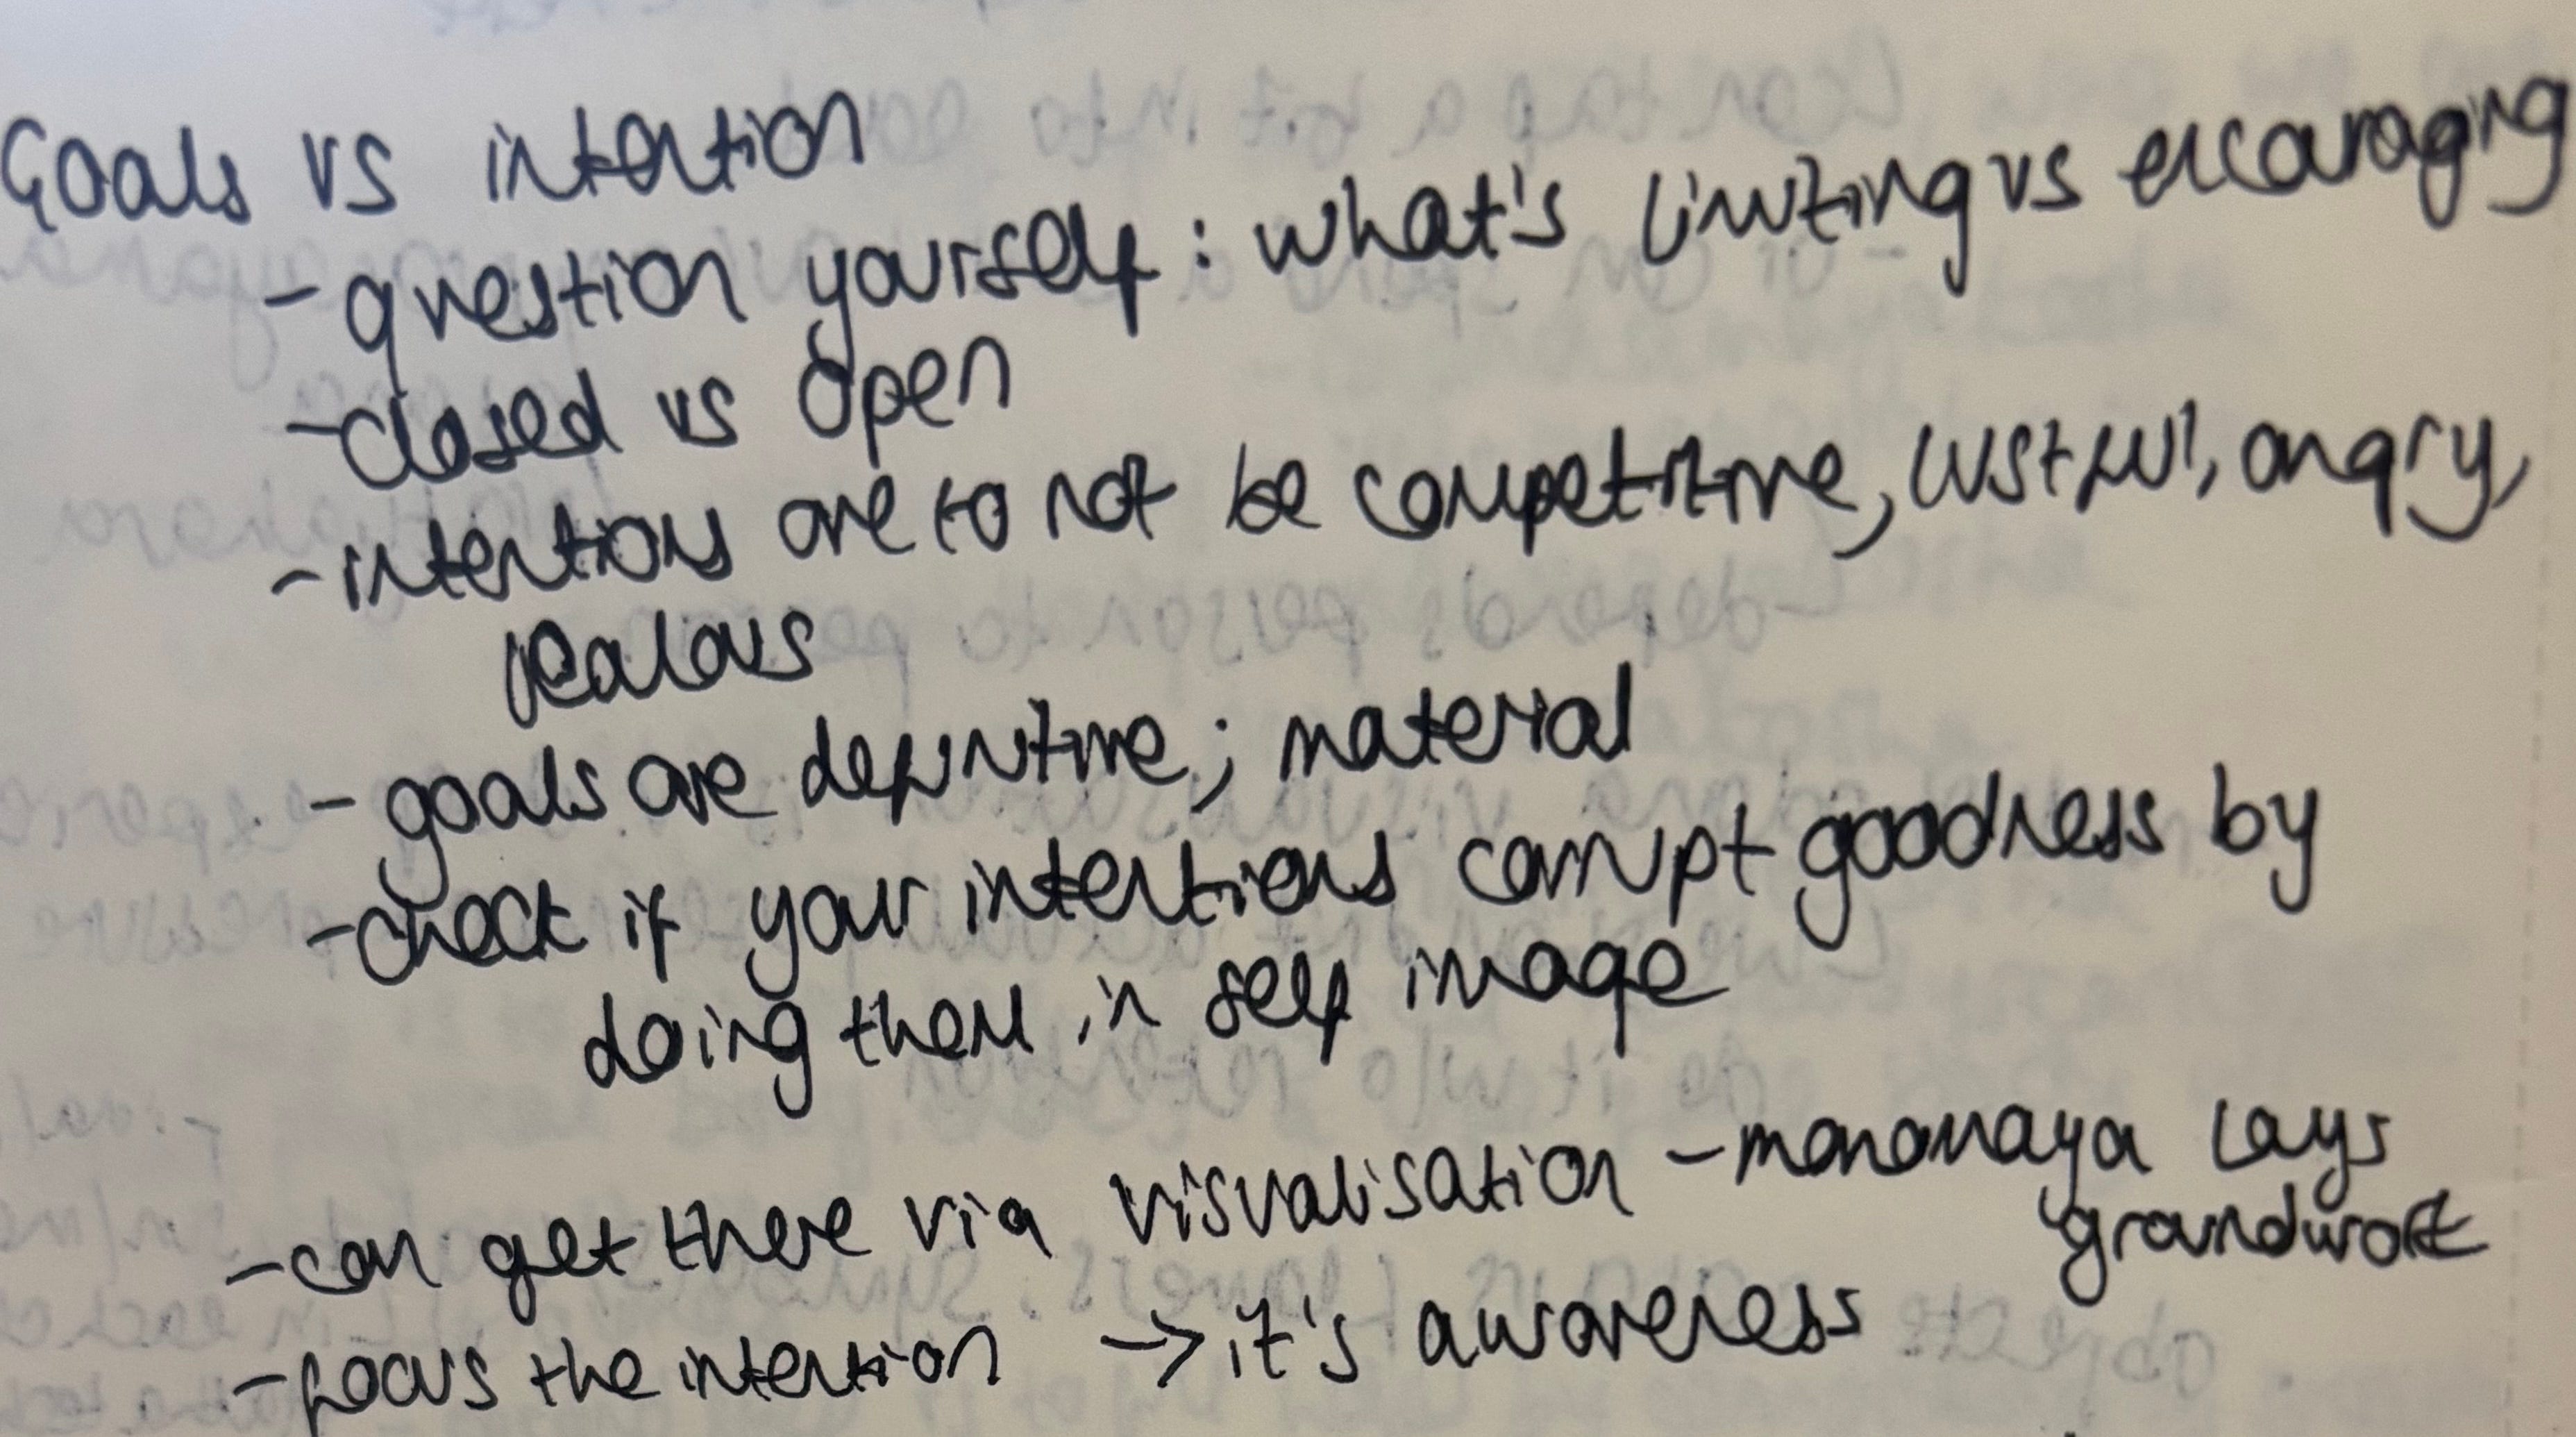 Goals vs intention
- question yourself : what's limiting vs encouraging
- closed vs open
- intentions are to not be competitive, lustful, angry,
jealous
- goals are definitive; material
- check if your intentions corrupt goodness by
doing them in self image
- can get there via visualisation - manomaya lays
groundwork
- focus the intention → it's awareness